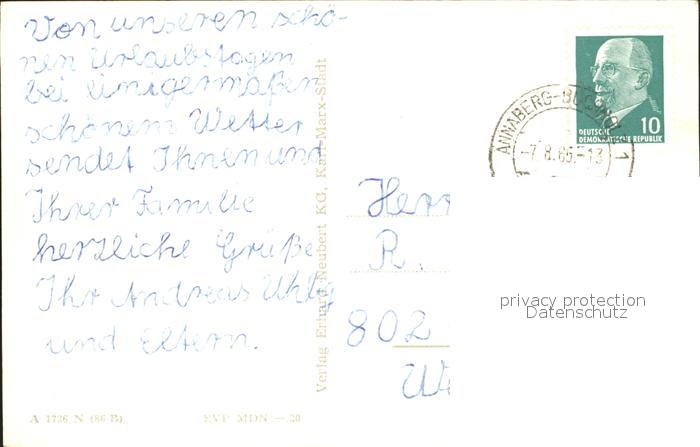 Von unseren schö-
nen Urlaubstagen
bei einigermaßen
schönem Wetter
sendet Ihnen und
Ihrer Familie
herzliche Grüße
Ihr Andreas Uhlig
und Eltern.
A 1736 N (86 B) EVP MDN — 20
Verlag Erhard Neubert KG, Karl-Marx-Stadt
ANNABERG-BUCHHOLZ 1
-7.8.65-13
10
DEUTSCHE
DEMOKRATISCHE REPUBLIK
Herr
R.
802
privacy protection
Datenschutz